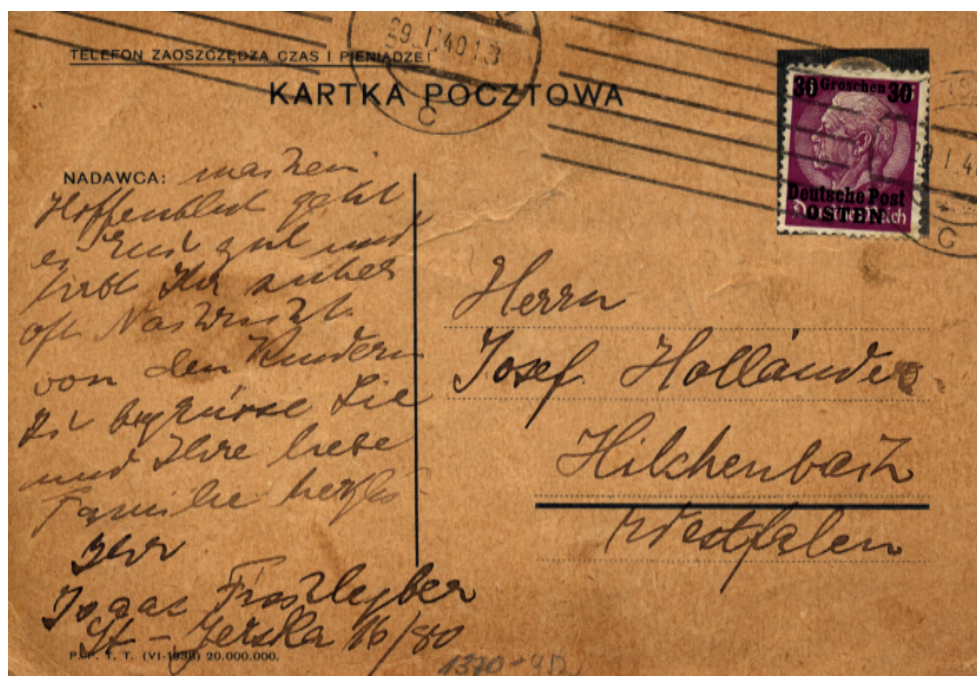 TELEFON ZAOSZCZĘDZA CZAS I PIENIĄDZE!
KARTKA POCZTOWA
29.I.40 13
C
30 Groschen 30
Deutsche Post
OSTEN
Deutsches Reich
C
NADAWCA: machen
Hoffentlich geht
es Euch gut und
habt Ihr sicher
oft Nachricht
von den Kindern
Ich begrüsse Sie
und Ihre liebe
Familie herzlich
Ihr
Isaac
16/80
Herrn
Josef Holländer
Hilchenbach
Westfalen
P.P.T.T. (VI-1938) 20.000.000.
1370-